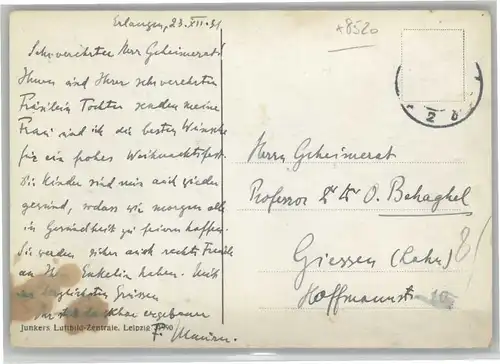 Erlangen, 23.XII.31
Sehr verehrter Herr Geheimerat!
Ihnen und Ihrer sehr verehrten
Fräulein Tochter senden meine
Frau und ich die besten Wünsche
für ein frohes Weihnachtsfest.
Die Kinder sind nun auch wieder
gesund, sodass wir morgen alle
in Gesundheit zu feiern hoffen.
Sie werden sicher auch rechte Freude
an Ihren Enkeln haben. Mit
herzlichsten Grüssen
Ihr stets dankbar ergebener
F. Maurer.
Junkers Luftbild-Zentrale, Leipzig
+8520
2 b
Herrn Geheimerat
Professor Dr. Dr. O. Behaghel
Giessen (Lahn)
Hoffmannstr. 10
8/